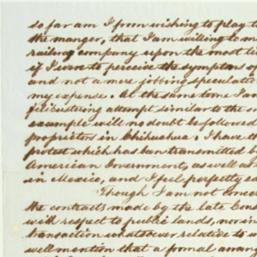 so far am I from wishing to play t
the manger, that I am willing to m
railway company upon the most li
if I were to perceive the symptoms of
and not a mere jobbing speculatio
my expense. At the same time I am
filibustering attempt similar to the
example will no doubt be followed
proprietor in Chihuahua. I have th
protest which has been transmitted by
American Government, as well as
in Mexico, and I feel perfectly sa
Though I am not
the contracts made by the late
with respect to public lands, nor in
transaction whatsoever relative to
well mention that a formal arran